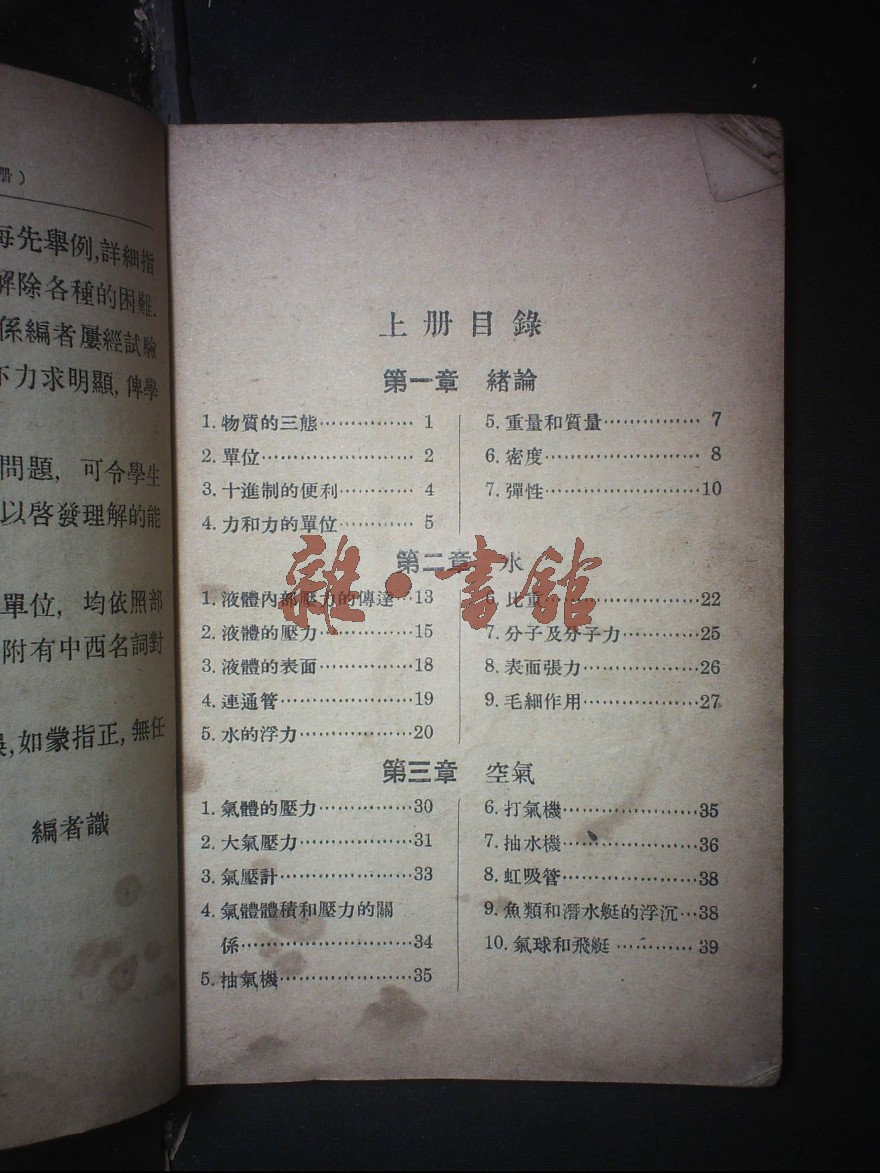 册）
每先舉例,詳細指
解除各種的困難.
係編者屢經試驗
亦力求明顯,俾學
問題, 可令學生
以啓發理解的能
單位, 均依照部
附有中西名詞對
,如蒙指正,無任
編者識
上册目錄
第一章 緒論
1. 物質的三態……………1
2. 單位……………2
3. 十進制的便利…………4
4. 力和力的單位…………5
5. 重量和質量……………7
6. 密度……………8
7. 彈性……………10
第二章 水
1. 液體內部壓力的傳達…13
2. 液體的壓力……………15
3. 液體的表面……………18
4. 連通管……………19
5. 水的浮力……………20
6. 比重……………22
7. 分子及分子力…………25
8. 表面張力……………26
9. 毛細作用……………27
第三章 空氣
1. 氣體的壓力……………30
2. 大氣壓力……………31
3. 氣壓計……………33
4. 氣體體積和壓力的關
係……………34
5. 抽氣機……………35
6. 打氣機……………35
7. 抽水機……………36
8. 虹吸管……………38
9. 魚類和潛水艇的浮沉…38
10. 氣球和飛艇…………39
雜·書館